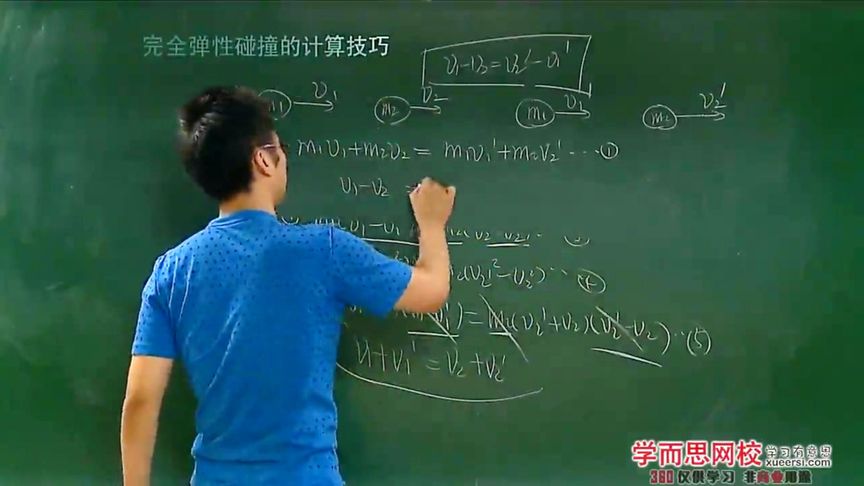 完全弹性碰撞的计算技巧
v₁-v₂=v₂′-v₁′
m₁ v₁ m₂ v₂ m₁ v₁′ m₂ v₂′
m₁v₁+m₂v₂=m₁v₁′+m₂v₂′……①
v₁-v₂ =
(v₂′²-v₂²)…④
)=m₂(v₂′+v₂)(v₂′-v₂)…(5)
v₁+v₁′=v₂+v₂′
学而思网校 学习有意思
xueersi.com
360仅供学习 非商业用途